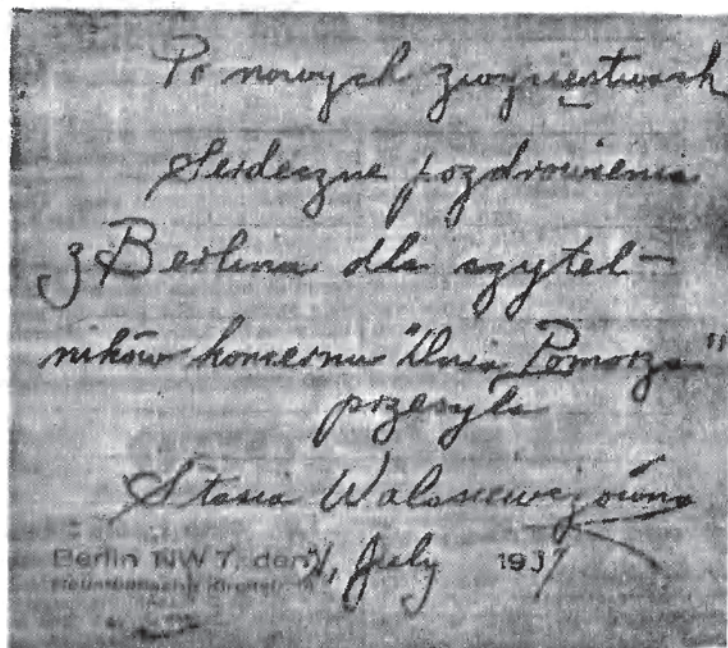 Po nowych zwycięstwach
Serdeczne pozdrowienia
z Berlina dla czytel-
ników koncernu "Dnia Pomorza"
przesyła
Stasia Walasiewiczówna
Berlin NW 7, den July 1937